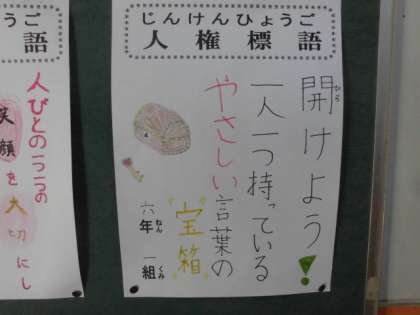 じんけんひょうご
人権標語
開けよう!
ひら
一人一つ持っている
やさしい言葉の
"宝箱"
六年一組
ねん くみ
うご
語
人びとの心の
笑顔を大切にし